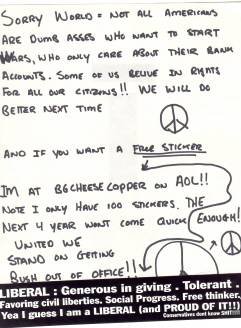 SORRY WORLD = NOT ALL AMERICANS
ARE DUMB ASSES WHO WANT TO START
WARS, WHO ONLY CARE ABOUT THEIR BANK
ACCOUNTS. SOME OF US BELIVE IN RIGHTS
FOR ALL OUR CITIZENS!! WE WILL DO
BETTER NEXT TIME
AND IF YOU WANT A FREE STICKER
IM AT BGCHEESECOPPER ON AOL!!
NOTE I ONLY HAVE 100 STICKERS. THE
NEXT 4 YEAR WONT COME QUICK ENOUGH!
UNITED WE
STAND ON GETTING
BUSH OUT OF OFFICE!!
LIBERAL : Generous in giving . Tolerant .
Favoring civil liberties. Social Progress. Free thinker.
Yea I guess I am a LIBERAL (and PROUD OF IT!!)
Conservatives dont know SHIT!!!!